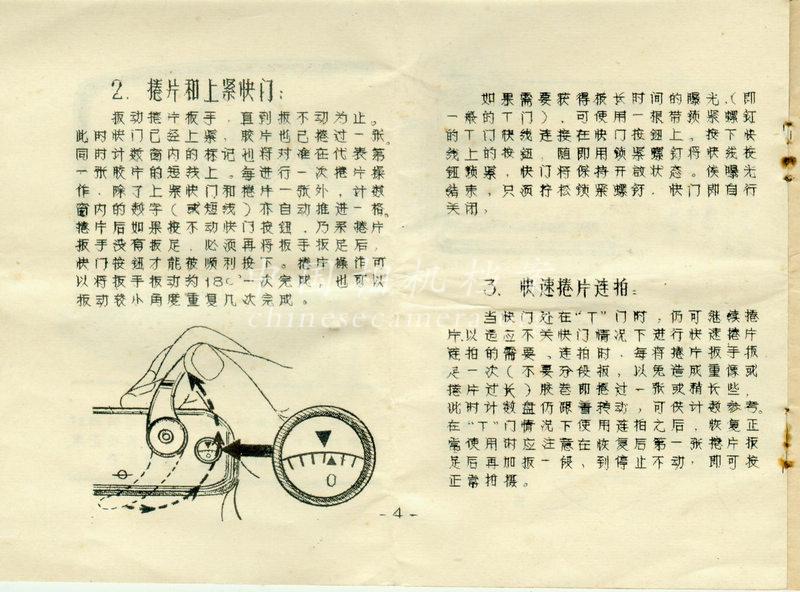 2. 捲片和上紧快门:
扳动捲片扳手，直到扳不动为止。
此时快门已经上紧，胶片也已捲过一张。
同时计数窗内的标记也将对准在代表第
一张胶片的短线上。每进行一次捲片操
作，除了上紧快门和捲片一张外，计数
窗内的数字（或短线）亦自动推进一格。
捲片后如果按不动快门按钮，乃系捲片
扳手没有扳足，必须再将扳手扳足后，
快门按钮才能被顺利按下。捲片操作可
以将扳手扳动约180°一次完成，也可以
扳动较小角度重复几次完成。
0
如果需要获得极长时间的曝光，（即
一般的T门），可使用一根带锁紧螺钉
的T门快线连接在快门按钮上。按下快
线上的按钮，随即用锁紧螺钉将快线按
钮锁紧，快门将保持开启状态。俟曝光
结束，只须拧松锁紧螺钉，快门即自行
关闭，
3. 快速捲片连拍:
当快门处在“T”门时，仍可继续捲
片以适应不关快门情况下进行快速捲片
连拍的需要。连拍时，每将捲片扳手扳
足一次（不要分段扳，以免造成重像或
捲片过长）胶卷即捲过一张或稍长些，
此时计数盘仍跟着转动，可供计数参考。
在“T”门情况下使用连拍之后，恢复正
常使用时应注意在恢复后第一张捲片扳
足后再加扳一段、到停止不动，即可按
正常拍摄。
- 4 -